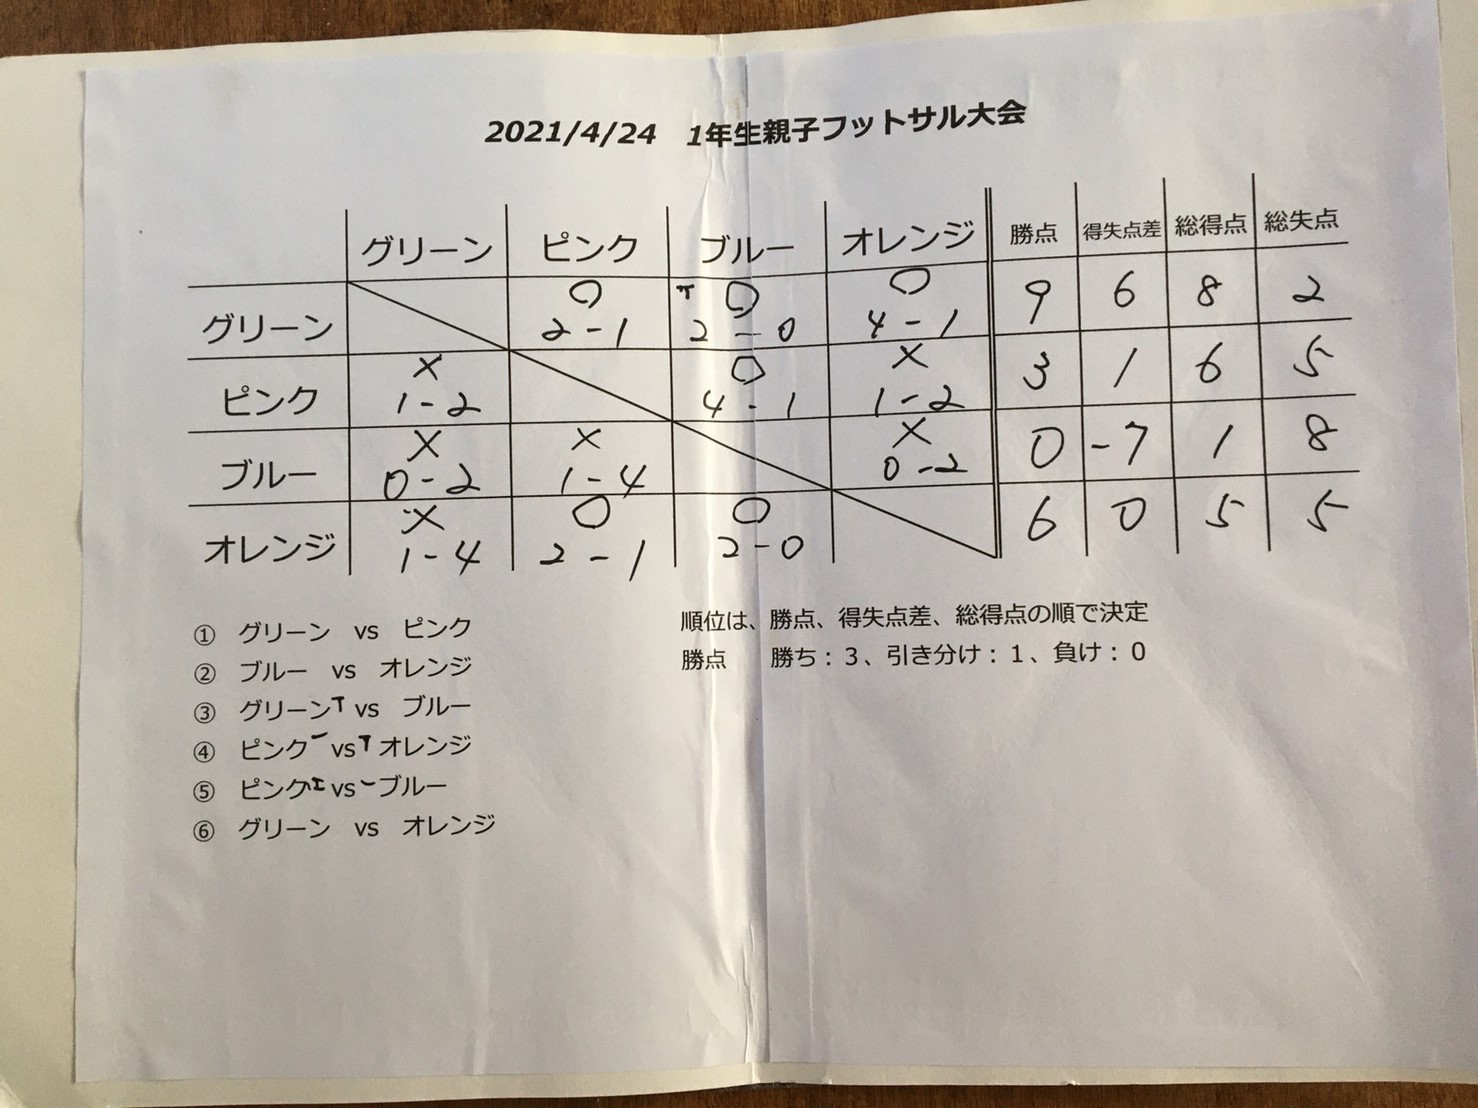 2021/4/24 1年生親子フットサル大会
グリーン ピンク ブルー オレンジ 勝点 得失点差 総得点 総失点
グリーン ○ 2-1 T ○ 2-0 ○ 4-1 9 6 8 2
ピンク × 1-2 ○ 4-1 × 1-2 3 1 6 5
ブルー × 0-2 × 1-4 × 0-2 0 -7 1 8
オレンジ × 1-4 ○ 2-1 ○ 2-0 6 0 5 5
① グリーン vs ピンク
② ブルー vs オレンジ
③ グリーンT vs ブルー
④ ピンク一 vsT オレンジ
⑤ ピンクエ vs一ブルー
⑥ グリーン vs オレンジ
順位は、勝点、得失点差、総得点の順で決定
勝点 勝ち:3、引き分け:1、負け:0